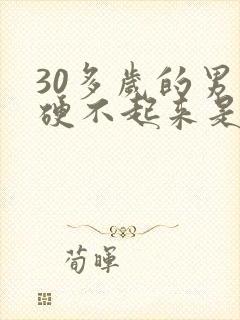 30多歲的男
硬不起来是
荀暉